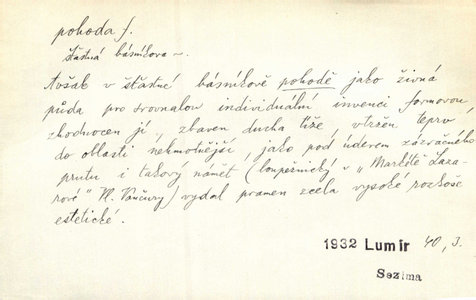 pohoda f.
šťastná básníkova ~.
Avšak v šťastné básníkově pohodě jako živná
půda pro srovnalou individuální invenci formovou,
zhodnocen jí, zbaven ducha tíže, vtržen teprv
do oblasti nehmotnější, jako pod úderem zázračného
prutu i takový námět (loupežnický v "Markétě Laza-
rové" Vl. Vančury) vydal pramen zcela vysoké rozkoše
estetické.
1932 Lumír 40, 3.
Sezima